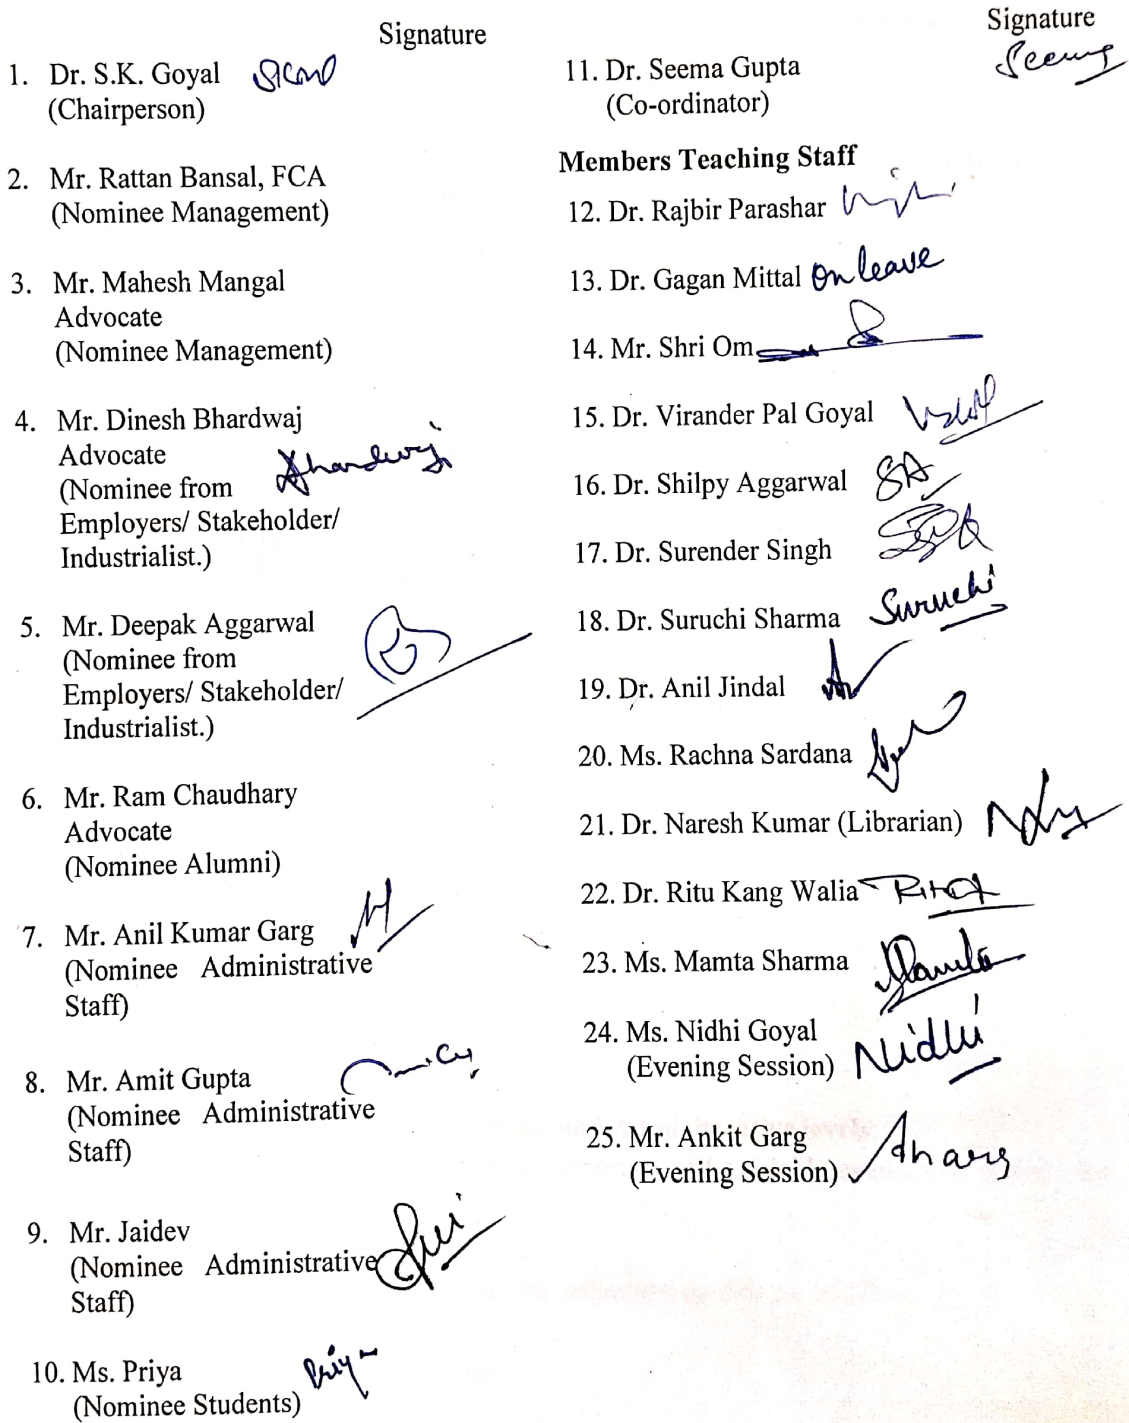 Signature
1. Dr. S.K. Goyal
(Chairperson)
2. Mr. Rattan Bansal, FCA
(Nominee Management)
3. Mr. Mahesh Mangal
Advocate
(Nominee Management)
4. Mr. Dinesh Bhardwaj
Advocate
(Nominee from
Employers/ Stakeholder/
Industrialist.)
5. Mr. Deepak Aggarwal
(Nominee from
Employers/ Stakeholder/
Industrialist.)
6. Mr. Ram Chaudhary
Advocate
(Nominee Alumni)
7. Mr. Anil Kumar Garg
(Nominee Administrative
Staff)
8. Mr. Amit Gupta
(Nominee Administrative
Staff)
9. Mr. Jaidev
(Nominee Administrative
Staff)
10. Ms. Priya Priya
(Nominee Students)
Signature
11. Dr. Seema Gupta
(Co-ordinator)
Members Teaching Staff
12. Dr. Rajbir Parashar
13. Dr. Gagan Mittal On leave
14. Mr. Shri Om
15. Dr. Virander Pal Goyal
16. Dr. Shilpy Aggarwal SA
17. Dr. Surender Singh
18. Dr. Suruchi Sharma Suruchi
19. Dr. Anil Jindal
20. Ms. Rachna Sardana
21. Dr. Naresh Kumar (Librarian)
22. Dr. Ritu Kang Walia
23. Ms. Mamta Sharma
24. Ms. Nidhi Goyal Nidhi
(Evening Session)
25. Mr. Ankit Garg
(Evening Session)